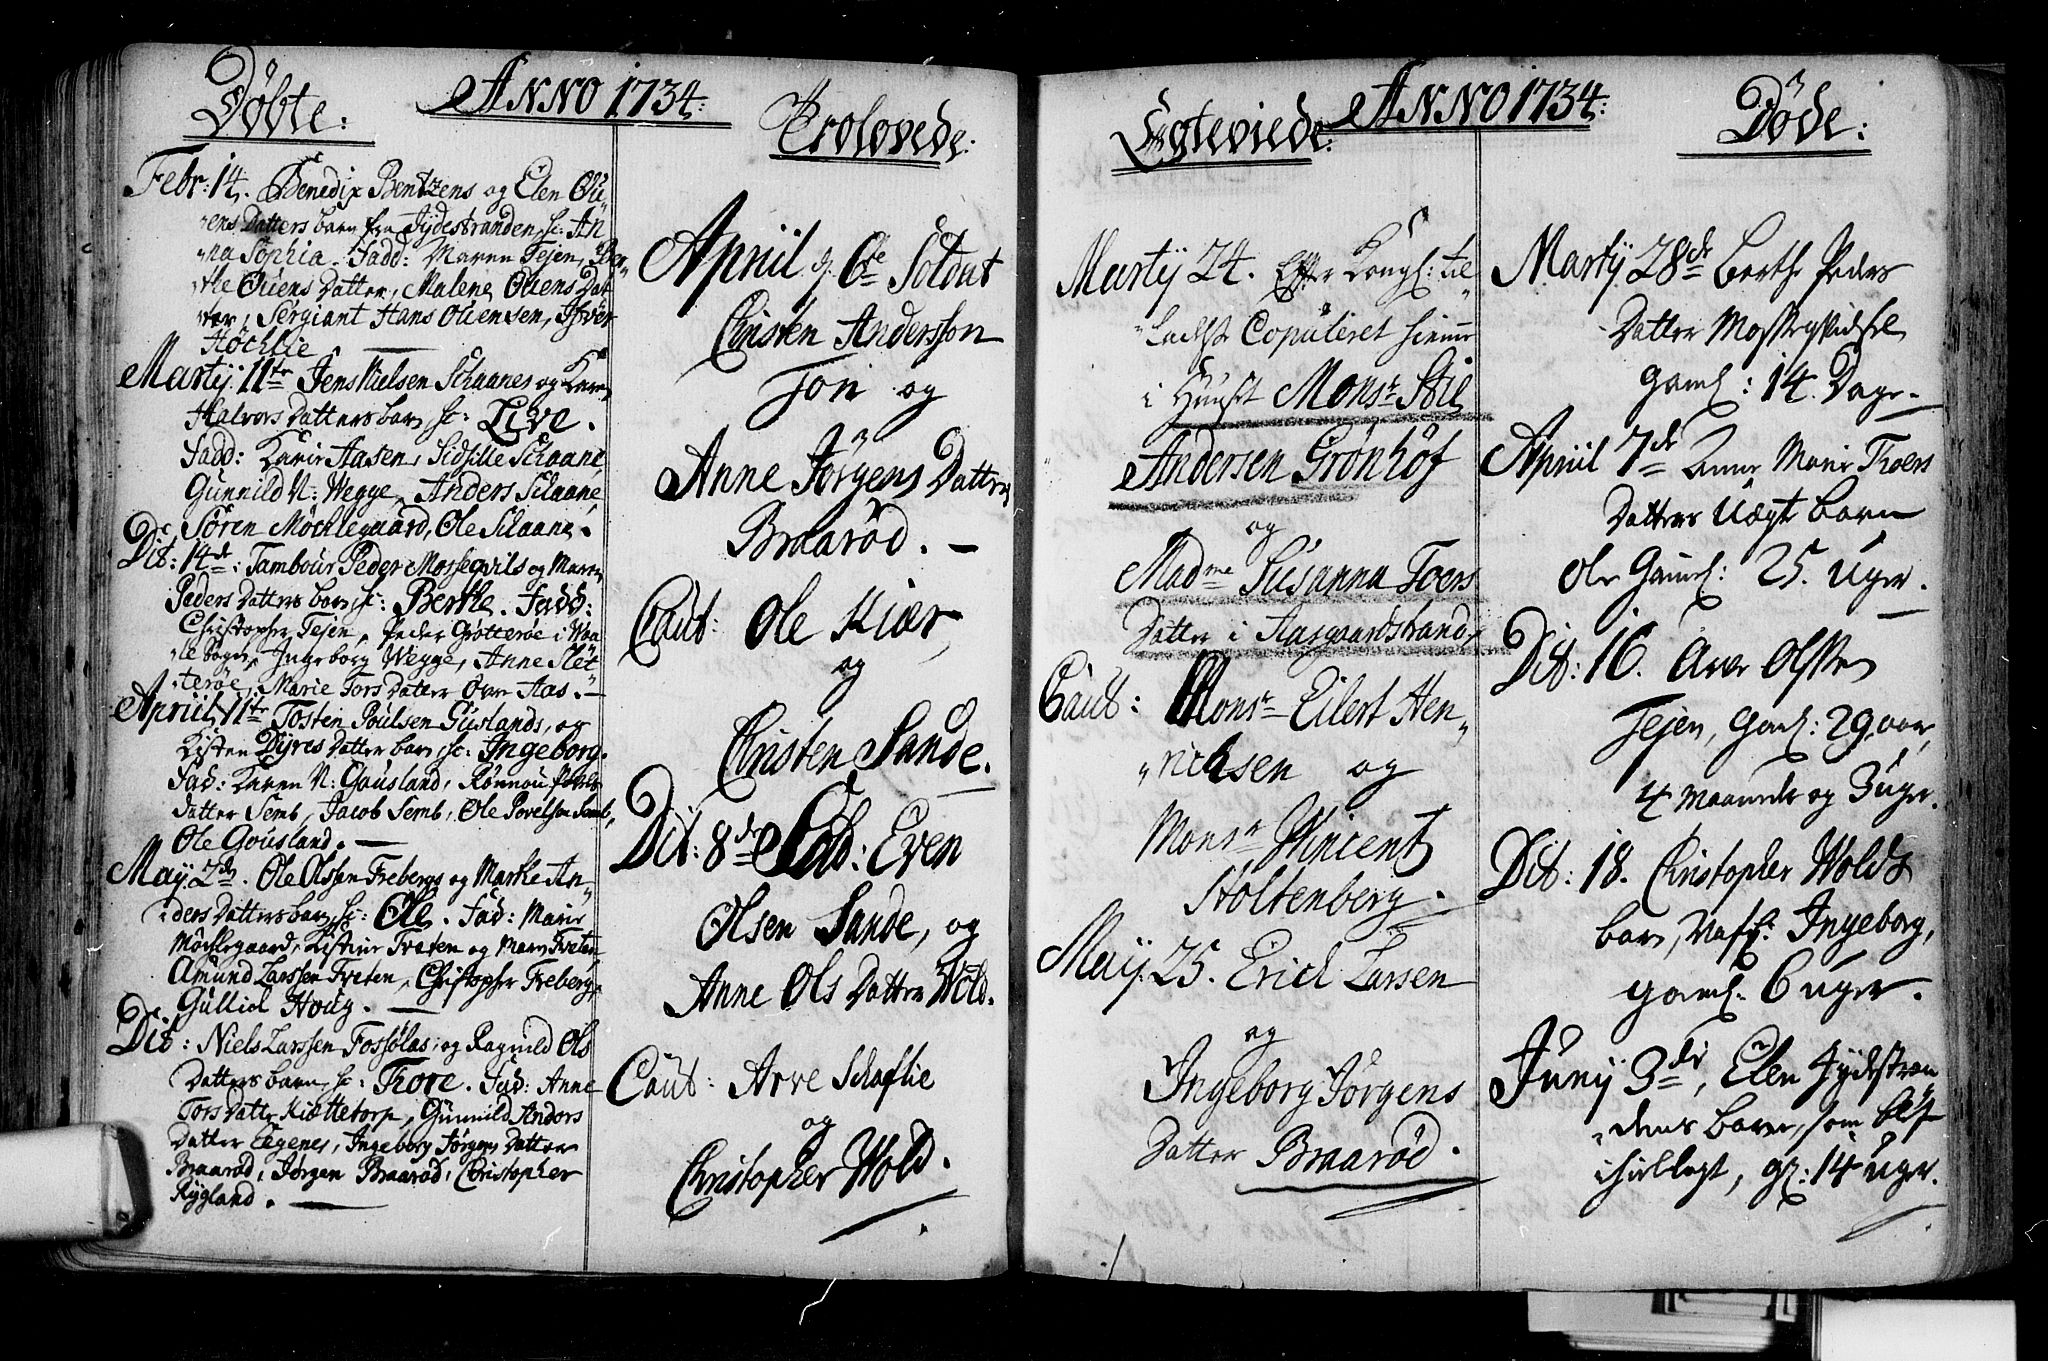 Döbte:
ANNO 1734:
Febr: 14. Benedix Bentzens og Elen Ou„
„ens Datters barn fra Jydestranden, sc: An
„na Sophia. Fadd: Maren Tejen, Ber„
„the Ouens Datter, Malene Ouens Dat
„ter, Sergiant Hans Ouensen, Iver
Höchlie.
Martij 11te Jens Nielsen Schaanes og Karen
Halvors Datters barn sc: Live.
Fadd: Karir Aasen, Sidsille Schaane
Gunnild N: Wegge, Anders Schaane,
Sören Möchlegaard, Ole Schaane.
Dit: 14de: Tambour Peder Mossegvils og Maren
Peders Datters barn, sc: Berthe. Fadd:
Christopher Tejen, Peder Gröteröe i Waa
„le Sogn, Ingeborg Wegge, Anne Slet
„teröe, Marie Tors Datter Övre Aas.
Apriil 11te Tosten Poulsen Guslands, og
Kisten Dyres Datter barn, sc: Ingeborg.
Fad: Karen N: Gousland, Rönnou Povels
datter Semb, Jacob Semb, Ole Povelsen Semb,
Ole Gousland.
May 2de. Ole Olssen Frebergs og Marthe An„
„ders Datters barn, sc: Ole. Fad: Marie
Möchlegaard, Kistine Freten og Maren Freten
Amund Larssen Freten, Christopher Freberg,
Gullich Houg.
Dit: Niels Larssen Fossølas, og Ragnild Ols
Datters barn, sc: Thore. Fad: Anne
Tors Datter Kiettetorp, Gunnild Anders
Datter Eegenes, Ingeborg Jörgens Datter
Braaröd, Jörgen Braaröd, Christopher
Rygland.
Trolovede:
Apriil d. 6te Soldat
Christen Andersson
Ton og
Anne Jörgens Datter
Braaröd.
Caut: Ole Kiær,
og
Christen Sande.
Dit: 8de Sold: Even
Olsen Sande, og
Anne Ols Datter Wold.
Caut: Arve Schaflie
og
Christopher Wold.
Egteviede:
ANNO 1734:
Martij 24. Efter Kongl: til„
„ladelse Copuleret hiemme
i Huuset Monsr Stil
Andersen Grönhöf
og
Madme Susanna Toers
Datter i Aasgaardstrand,
Caut: Monsr Eilert Hen„
„richsen og
Monsr Wincent
Stoltenberg.
Maij 25. Erich Larsen
og
Ingeborg Jörgens
Datter Braaröd.
Döde:
Martij 28de Berthe Peders
Datter Mossegvidsel
Gaml: 14. Dage.
Apriil 7de Anne Marie Thoers
Datters Uægte barn
Ole Gaml: 25. Uger.
Dit: 16. Arve Olssen
Tejen, Gaml: 29. aar,
4 Maaneder og 3 uger.
Dit: 18. Christopher Wolds
barn, Nafl: Ingeborg,
gaml: 6 uger.
Junij 3de, Elen Jydestran
„dens barn, som blef
ihiellagt, gl: 14 uger.